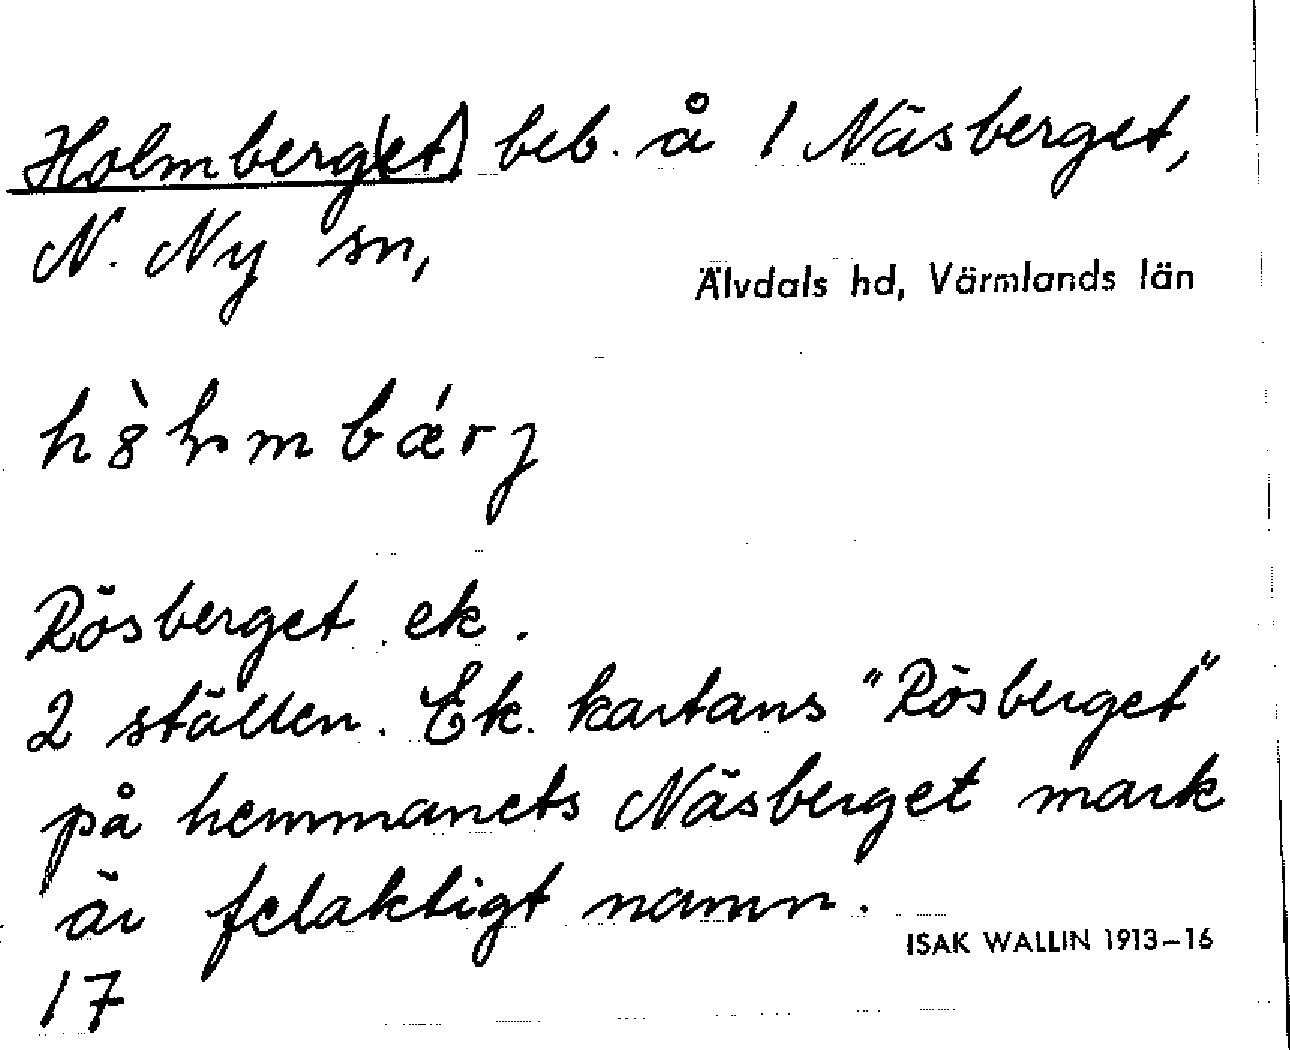 Holmberg(et) beb. å 1 Näsberget,
N. Ny sn,
Älvdals hd, Värmlands län
Rösberget ek.
2 ställen. Ek. kartans "Rösberget"
på hemmanets Näsberget mark
är felaktigt namn.
ISAK WALLIN 1913–16
17